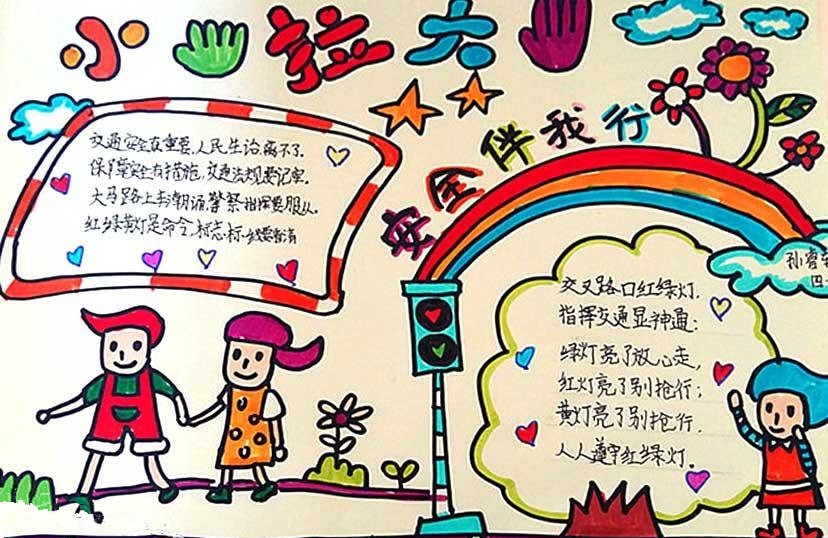 小拉大
安全伴我行
交通安全真重要,人民生活离不了.
保障安全有措施,交通法规要记牢.
大马路上车潮涌,警察指挥要服从.
红绿黄灯是命令,标志标线要看清
孙睿
四
交叉路口红绿灯.
指挥交通显神通:
绿灯亮了放心走,
红灯亮了别抢行;
黄灯亮了别抢行.
人人遵守红绿灯.